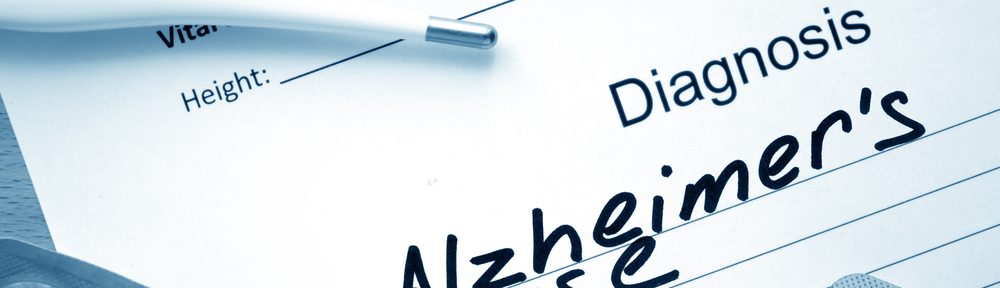 Vital
Height:
Diagnosis
Alzheimer's
se